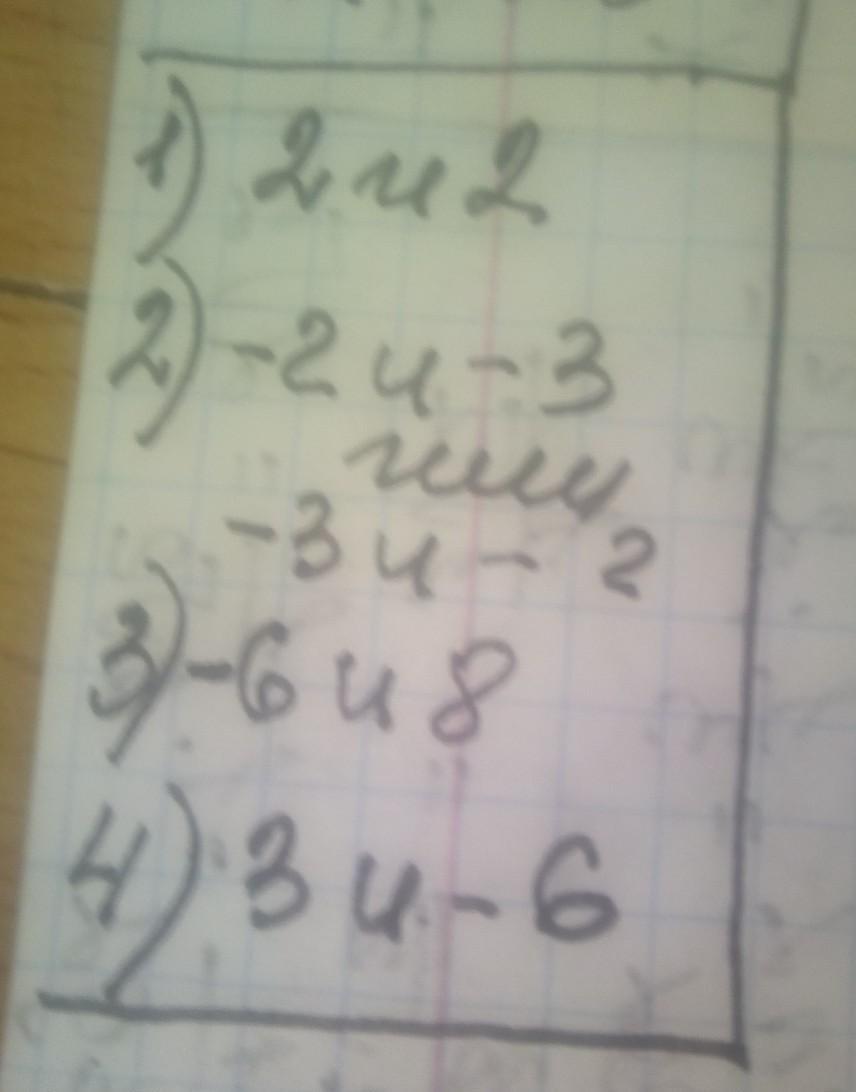 1) 2 и 2
2) -2 и -3
или
-3 и - 2
3) -6 и 8
4) 3 и - 6